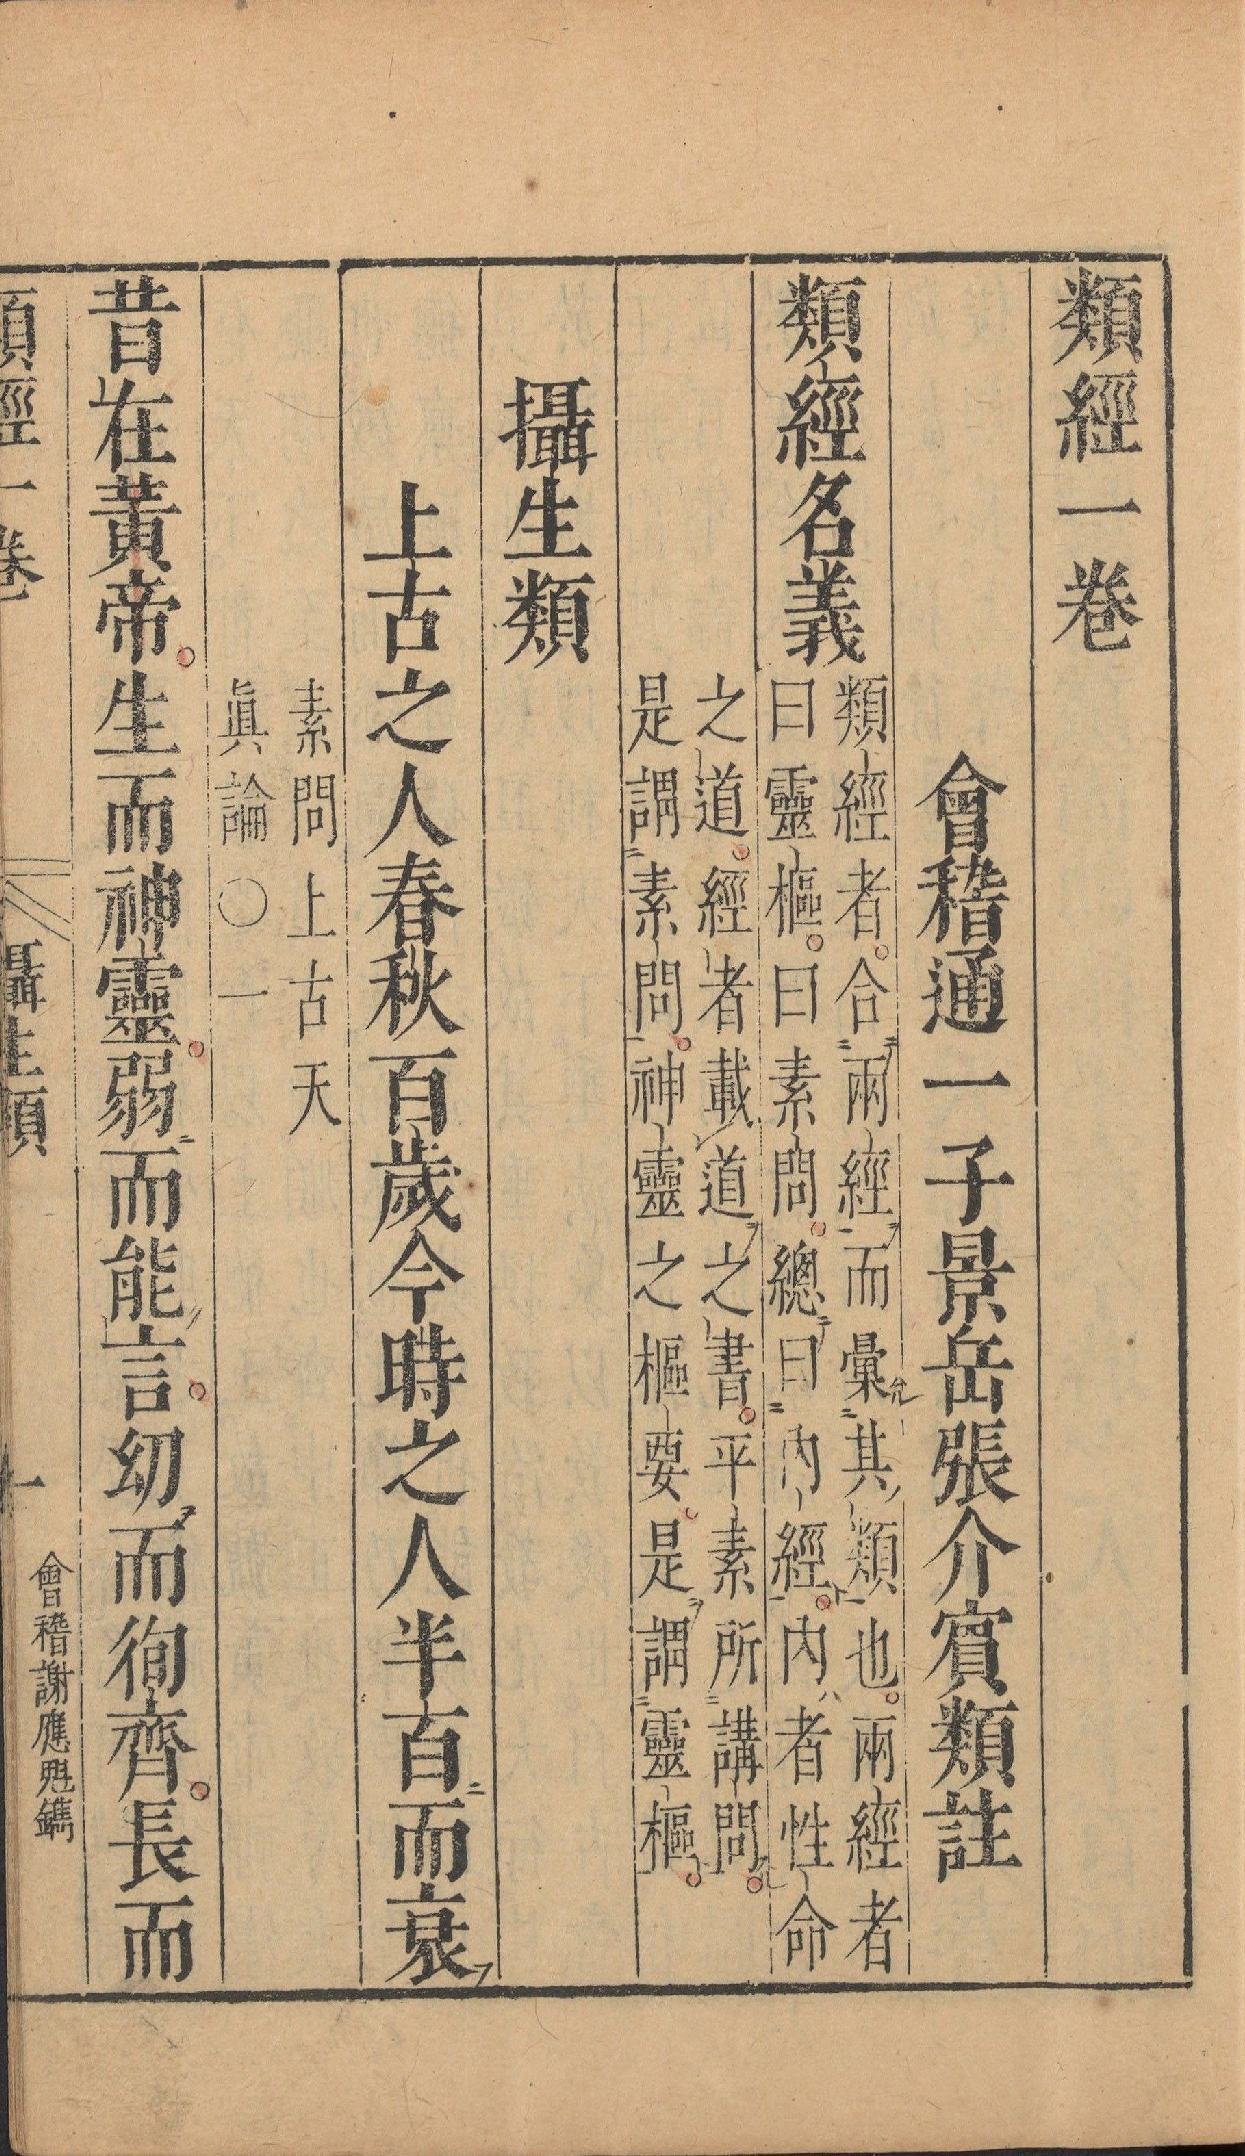 類經一卷
會稽通一子景岳張介賔類註
類經名義
類經者合兩經而彙其類也兩經者
曰靈樞曰素問總曰內經內者性命
之道經者載道之書平素所講問
是謂素問神靈之樞要是謂靈樞
攝生類
上古之人春秋百歲今時之人半百而衰
素問上古天
眞論〇一
昔在黃帝生而神靈弱而能言幼而徇齊長而
類經一卷
攝生類
一
會稽謝應魁鐫